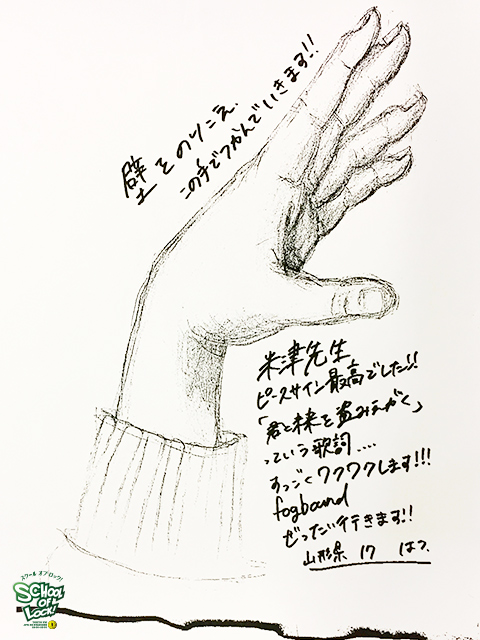 壁をのりこえ、
この手でつかんでいきます!!
米津先生
ピースサイン最高でした!!
「君と未来を盗みえがく」
っていう歌詞....
すっごくワクワクします!!!
fogbound
ぜったい行きます!!
山形県 17 はつ
スクール オブ ロック!
SCHOOL
OF
LOCK!